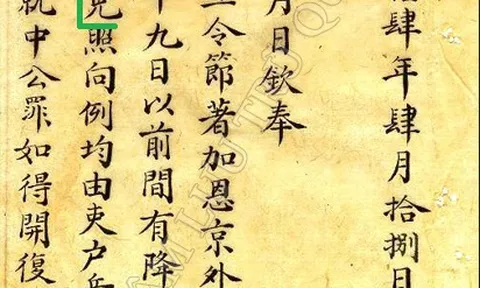 肆年肆月拾捌日
月日欽奉
令節著加恩京外
十九日以前間有降
照向例均由吏户
就中公罪如得開復
ÂM LƯU TRỮ QU